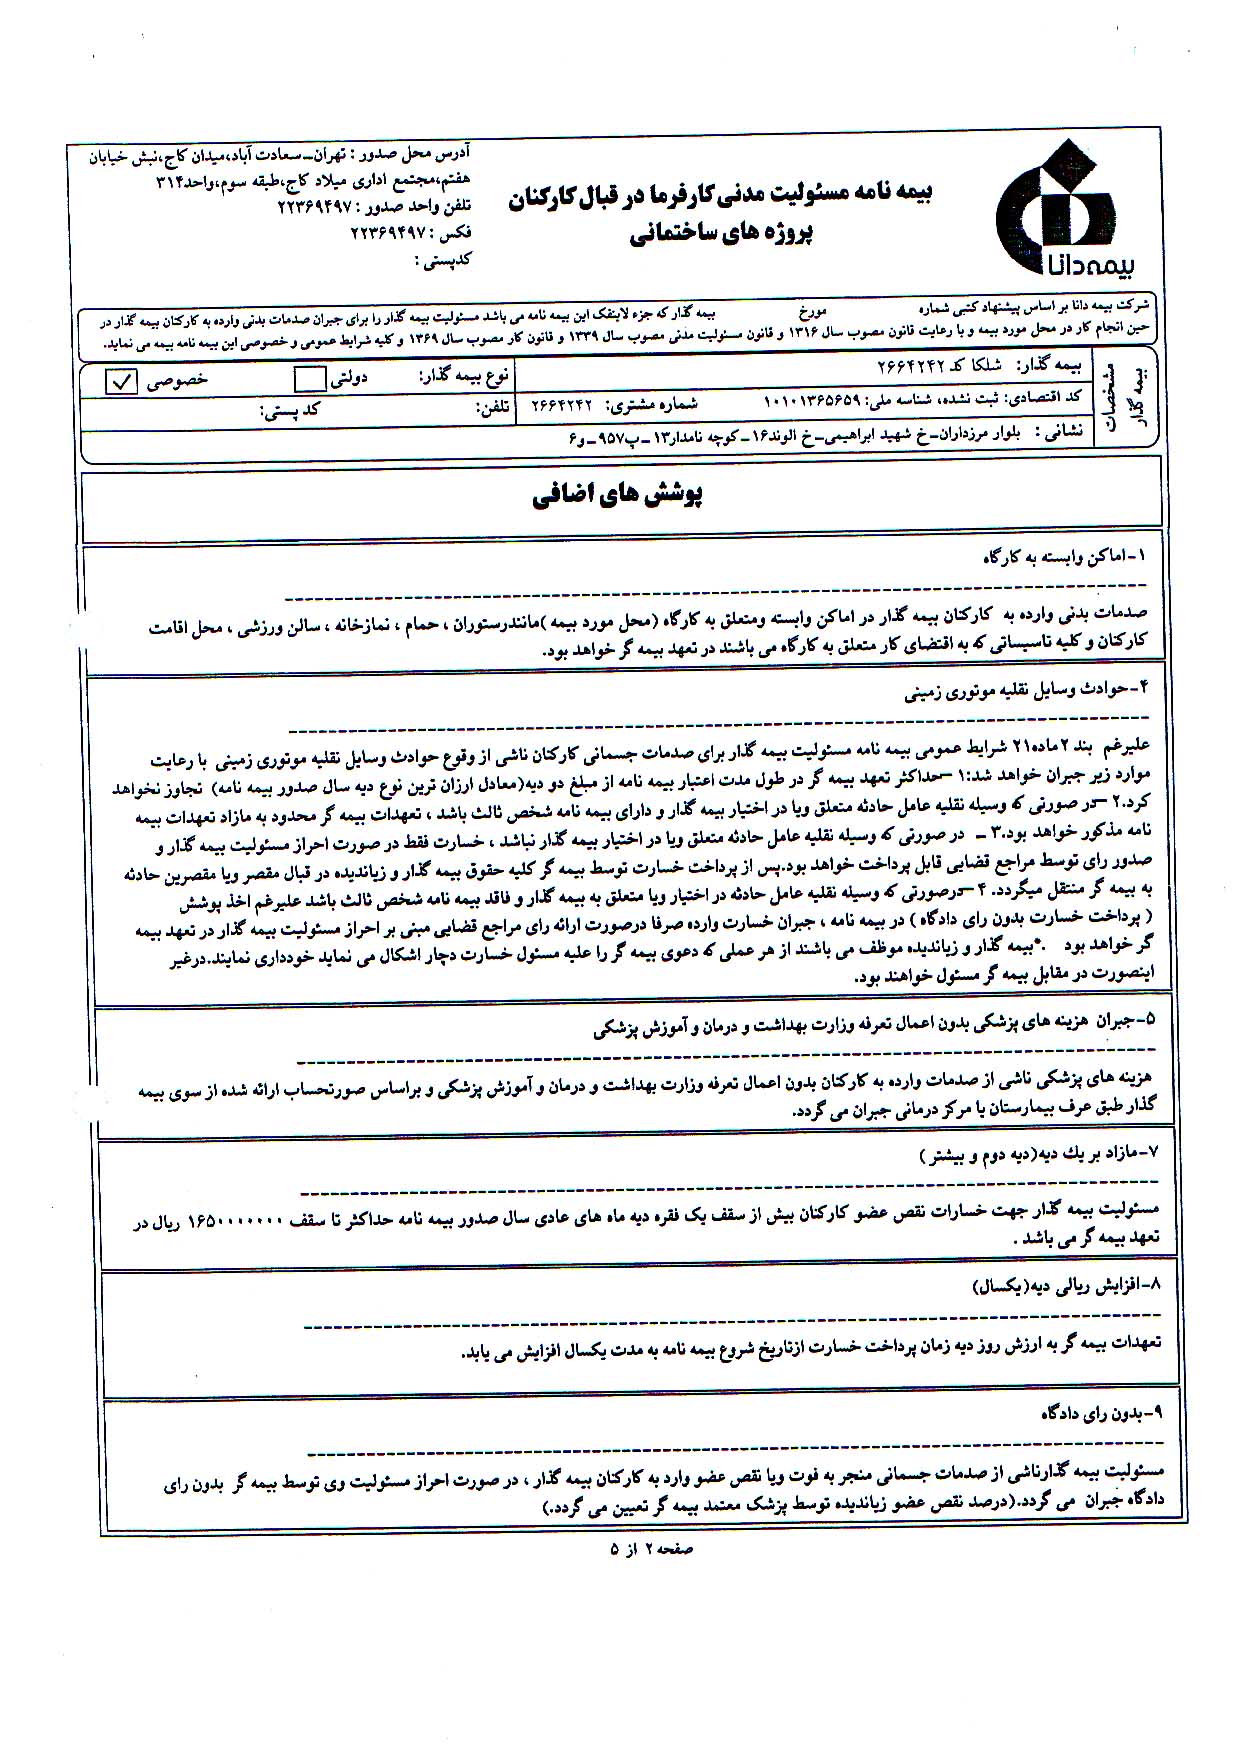 بیمه دانا
بیمه نامه مسئولیت مدنی کارفرما در قبال کارکنان
پروژه های ساختمانی
آدرس محل صدور : تهران-سعادت آباد،میدان کاج،نبش خیابان
هفتم،مجتمع اداری میلاد کاج،طبقه سوم،واحد۳۱۴
تلفن واحد صدور : ۲۲۳۶۹۴۹۷
فکس : ۲۲۳۶۹۴۹۷
کدپستی :
شرکت بیمه دانا بر اساس پیشنهاد کتبی شماره مورخ بیمه گذار که جزء لاینفک این بیمه نامه می باشد مسئولیت بیمه گذار را برای جبران صدمات بدنی وارده به کارکنان بیمه گذار در
حین انجام کار در محل مورد بیمه و با رعایت قانون مصوب سال ۱۳۱۶ و قانون مسئولیت مدنی مصوب سال ۱۳۳۹ و قانون کار مصوب سال ۱۳۶۹ و کلیه شرایط عمومی و خصوصی این بیمه نامه بیمه می نماید.
مشخصات
بیمه گذار
بیمه گذار: شلکا کد ۲۶۶۴۲۴۲
نوع بیمه گذار: دولتی خصوصی ✓
کد اقتصادی: ثبت نشده، شناسه ملی: ۱۰۱۰۱۳۶۵۶۵۹
شماره مشتری: ۲۶۶۴۲۴۲
تلفن: کد پستی:
نشانی : بلوار مرزداران-خ شهید ابراهیمی-خ الوند۱۶-کوچه نامدار۱۳-پ۹۵۷-و۶
پوشش های اضافی
۱-اماکن وابسته به کارگاه
صدمات بدنی وارده به کارکنان بیمه گذار در اماکن وابسته ومتعلق به کارگاه (محل مورد بیمه )مانندرستوران ، حمام ، نمازخانه ، سالن ورزشی ، محل اقامت
کارکنان و کلیه تاسیساتی که به اقتضای کار متعلق به کارگاه می باشند در تعهد بیمه گر خواهد بود.
۴-حوادث وسایل نقلیه موتوری زمینی
علیرغم بند ۲ماده۲۱ شرایط عمومی بیمه نامه مسئولیت بیمه گذار برای صدمات جسمانی کارکنان ناشی از وقوع حوادث وسایل نقلیه موتوری زمینی با رعایت
موارد زیر جبران خواهد شد:۱-حداکثر تعهد بیمه گر در طول مدت اعتبار بیمه نامه از مبلغ دو دیه(معادل ارزان ترین نوع دیه سال صدور بیمه نامه) تجاوز نخواهد
کرد.۲-در صورتی که وسیله نقلیه عامل حادثه متعلق ویا در اختیار بیمه گذار و دارای بیمه نامه شخص ثالث باشد ، تعهدات بیمه گر محدود به مازاد تعهدات بیمه
نامه مذکور خواهد بود.۳- در صورتی که وسیله نقلیه عامل حادثه متعلق ویا در اختیار بیمه گذار نباشد ، خسارت فقط در صورت احراز مسئولیت بیمه گذار و
صدور رای توسط مراجع قضایی قابل پرداخت خواهد بود.پس از پرداخت خسارت توسط بیمه گر کلیه حقوق بیمه گذار و زیاندیده در قبال مقصر ویا مقصرین حادثه
به بیمه گر منتقل میگردد. ۴-درصورتی که وسیله نقلیه عامل حادثه در اختیار ویا متعلق به بیمه گذار و فاقد بیمه نامه شخص ثالث باشد علیرغم اخذ پوشش
( پرداخت خسارت بدون رای دادگاه ) در بیمه نامه ، جبران خسارت وارده صرفا درصورت ارائه رای مراجع قضایی مبنی بر احراز مسئولیت بیمه گذار در تعهد بیمه
گر خواهد بود .*بیمه گذار و زیاندیده موظف می باشند از هر عملی که دعوی بیمه گر را علیه مسئول خسارت دچار اشکال می نماید خودداری نمایند.درغیر
اینصورت در مقابل بیمه گر مسئول خواهند بود.
۵-جبران هزینه های پزشکی بدون اعمال تعرفه وزارت بهداشت و درمان و آموزش پزشکی
هزینه های پزشکی ناشی از صدمات وارده به کارکنان بدون اعمال تعرفه وزارت بهداشت و درمان و آموزش پزشکی و براساس صورتحساب ارائه شده از سوی بیمه
گذار طبق عرف بیمارستان یا مرکز درمانی جبران می گردد.
۷-مازاد بر یك دیه(دیه دوم و بیشتر )
مسئولیت بیمه گذار جهت خسارات نقص عضو کارکنان بیش از سقف یک فقره دیه ماه های عادی سال صدور بیمه نامه حداکثر تا سقف ۱۶۵۰۰۰۰۰۰۰ ریال در
تعهد بیمه گر می باشد .
۸-افزایش ریالی دیه(یکسال)
تعهدات بیمه گر به ارزش روز دیه زمان پرداخت خسارت ازتاریخ شروع بیمه نامه به مدت یکسال افزایش می یابد.
۹-بدون رای دادگاه
مسئولیت بیمه گذارناشی از صدمات جسمانی منجر به فوت ویا نقص عضو وارد به کارکنان بیمه گذار ، در صورت احراز مسئولیت وی توسط بیمه گر بدون رای
دادگاه جبران می گردد.(درصد نقص عضو زیاندیده توسط پزشک معتمد بیمه گر تعیین می گردد.)
صفحه ۲ از ۵